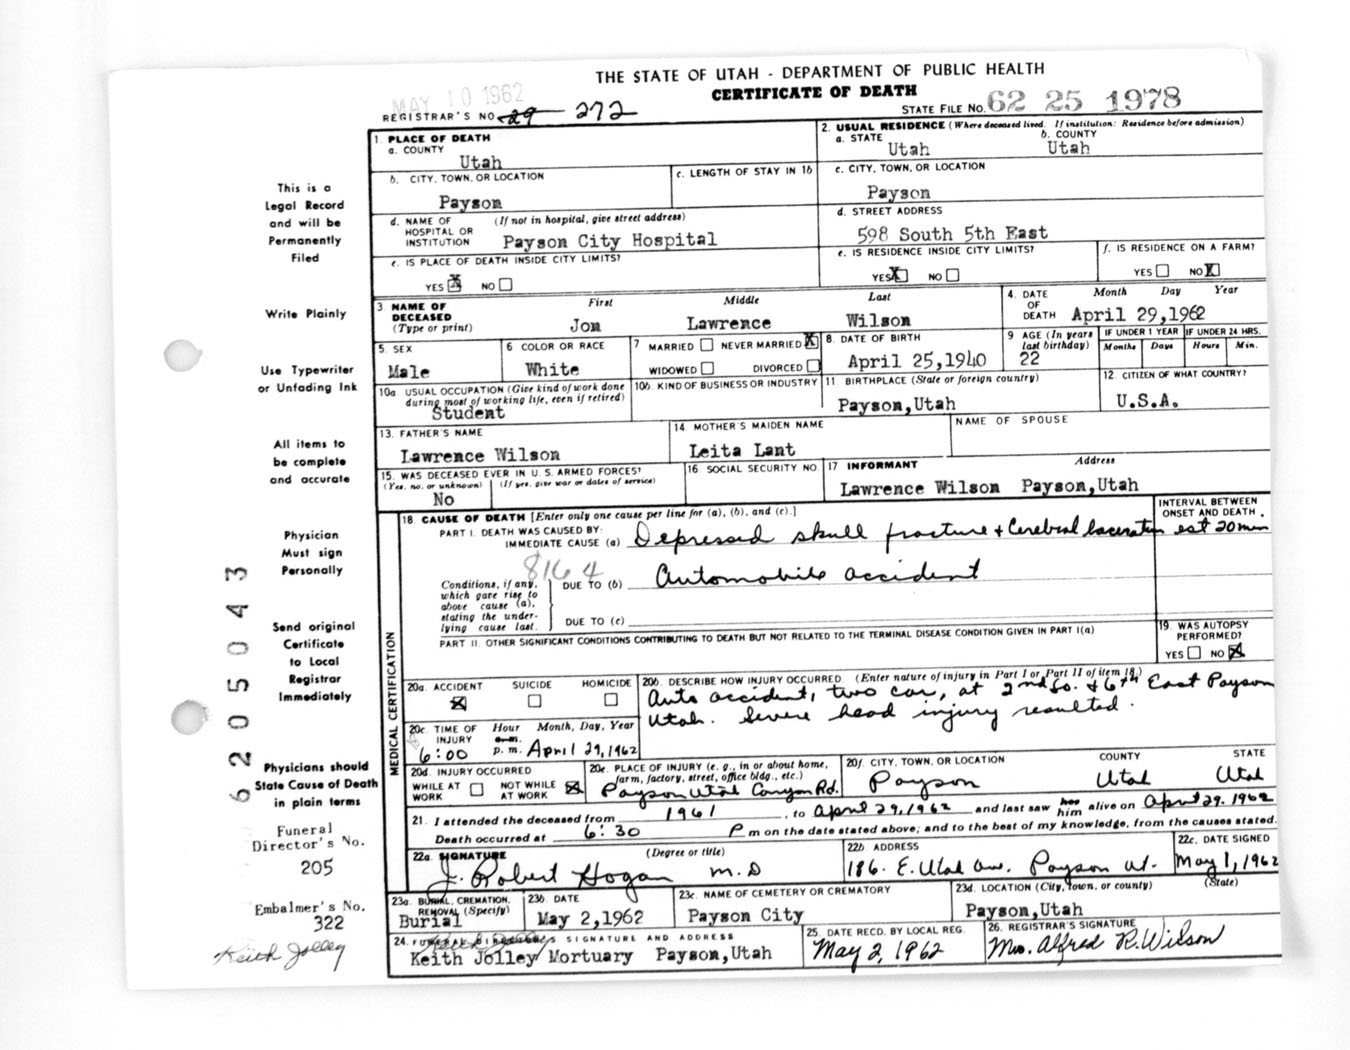 THE STATE OF UTAH - DEPARTMENT OF PUBLIC HEALTH
CERTIFICATE OF DEATH
MAY 10 1962
REGISTRAR'S NO. 29 272
STATE FILE NO. 62 25 1978
1. PLACE OF DEATH
a. COUNTY
Utah
2. USUAL RESIDENCE (Where deceased lived. If institution: Residence before admission)
a. STATE b. COUNTY
Utah Utah
b. CITY, TOWN, OR LOCATION
Payson
c. LENGTH OF STAY IN 1b
c. CITY, TOWN, OR LOCATION
Payson
d. NAME OF HOSPITAL OR INSTITUTION (If not in hospital, give street address)
Payson City Hospital
d. STREET ADDRESS
598 South 5th East
e. IS PLACE OF DEATH INSIDE CITY LIMITS?
YES X NO
e. IS RESIDENCE INSIDE CITY LIMITS?
YES X NO
f. IS RESIDENCE ON A FARM?
YES NO X
3. NAME OF DECEASED (Type or print)
First Middle Last
Jon Lawrence Wilson
4. DATE OF DEATH Month Day Year
April 29,1962
5. SEX
Male
6 COLOR OR RACE
White
7 MARRIED NEVER MARRIED X
WIDOWED DIVORCED
8. DATE OF BIRTH
April 25,1940
9 AGE (In years last birthday)
22
IF UNDER 1 YEAR IF UNDER 24 HRS.
Months Days Hours Min.
10a. USUAL OCCUPATION (Give kind of work done during most of working life, even if retired)
Student
10b. KIND OF BUSINESS OR INDUSTRY
11. BIRTHPLACE (State or foreign country)
Payson,Utah
12. CITIZEN OF WHAT COUNTRY?
U.S.A.
13. FATHER'S NAME
Lawrence Wilson
14 MOTHER'S MAIDEN NAME
Leita Lant
NAME OF SPOUSE
15. WAS DECEASED EVER IN U. S. ARMED FORCES?
(Yes, no, or unknown) (If yes, give war or dates of service)
No
16. SOCIAL SECURITY NO.
17 INFORMANT Address
Lawrence Wilson Payson,Utah
18. CAUSE OF DEATH [Enter only one cause per line for (a), (b), and (c).]
INTERVAL BETWEEN ONSET AND DEATH.
PART I. DEATH WAS CAUSED BY:
IMMEDIATE CAUSE (a) Depressed skull fracture + Cerebral laceration est 20 min
8164
Conditions, if any, which gave rise to above cause (a), stating the underlying cause last.
DUE TO (b) Automobile accident
DUE TO (c)
PART II. OTHER SIGNIFICANT CONDITIONS CONTRIBUTING TO DEATH BUT NOT RELATED TO THE TERMINAL DISEASE CONDITION GIVEN IN PART I(a)
19. WAS AUTOPSY PERFORMED?
YES NO X
MEDICAL CERTIFICATION
20a. ACCIDENT SUICIDE HOMICIDE
X
20b. DESCRIBE HOW INJURY OCCURRED. (Enter nature of injury in Part I or Part II of item 18.)
Auto accident, two car, at 2nd So. & 6th East Payson
Utah. Severe head injury resulted.
20c. TIME OF INJURY Hour Month, Day, Year
a.m.
6:00 p. m. April 29, 1962
20d. INJURY OCCURRED
WHILE AT WORK NOT WHILE AT WORK X
20e. PLACE OF INJURY (e. g., in or about home, farm, factory, street, office bldg., etc.)
Payson Utah Canyon Rd.
20f. CITY, TOWN, OR LOCATION COUNTY STATE
Payson Utah Utah
21. I attended the deceased from 1961, to April 29, 1962 and last saw her him alive on April 29. 1962
Death occurred at 6:30 P m on the date stated above; and to the best of my knowledge, from the causes stated.
22a. SIGNATURE (Degree or title)
J. Robert Hogan M. D
22b ADDRESS
186. E. Utah Ave. Payson Ut.
22c. DATE SIGNED
May 1, 1962
23a. BURIAL, CREMATION, REMOVAL (Specify)
Burial
23b. DATE
May 2,1962
23c. NAME OF CEMETERY OR CREMATORY
Payson City
23d. LOCATION (City, town, or county) (State)
Payson,Utah
24. FUNERAL DIRECTOR'S SIGNATURE AND ADDRESS
Keith Jolley
Keith Jolley Mortuary Payson,Utah
25. DATE RECD. BY LOCAL REG.
May 2, 1962
26. REGISTRAR'S SIGNATURE
Mrs. Alfred R. Wilson
This is a
Legal Record
and will be
Permanently
Filed
Write Plainly
Use Typewriter
or Unfading Ink
All items to
be complete
and accurate
Physician
Must sign
Personally
Send original
Certificate
to Local
Registrar
Immediately
Physicians should
State Cause of Death
in plain terms
Funeral
Director's No.
205
Embalmer's No.
322
Keith Jolley
62050043